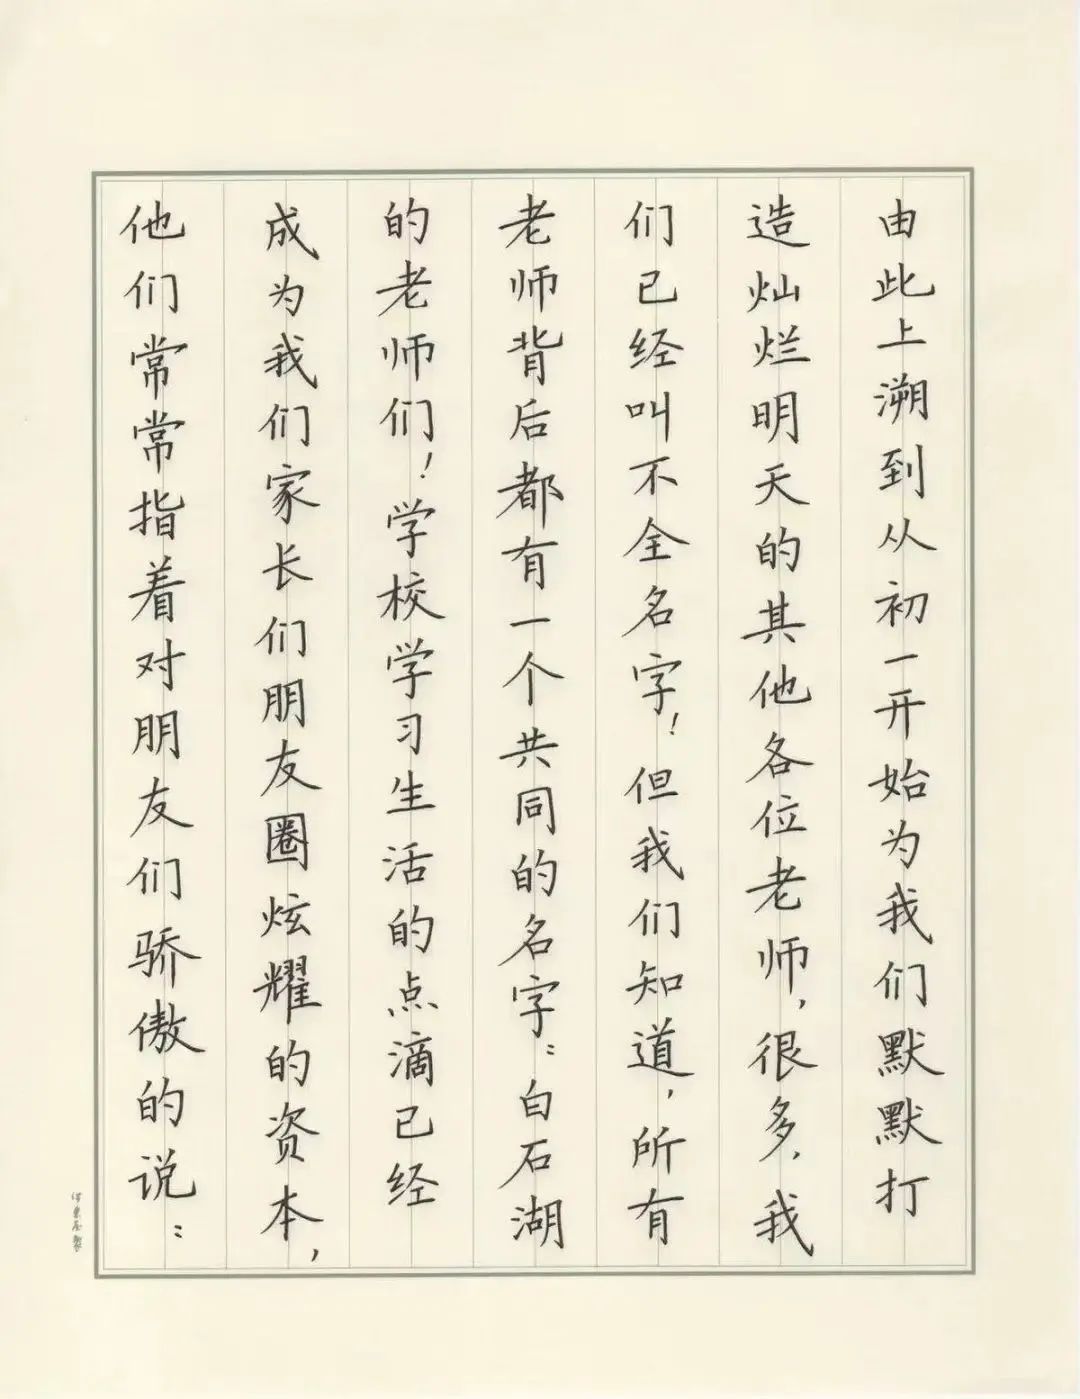 由此上溯到从初一开始为我们默默打
造灿烂明天的其他各位老师，很多，我
们已经叫不全名字！但我们知道，所有
老师背后都有一个共同的名字：白石湖
的老师们！学校学习生活的点滴已经
成为我们家长们朋友圈炫耀的资本，
他们常常指着对朋友们骄傲的说：